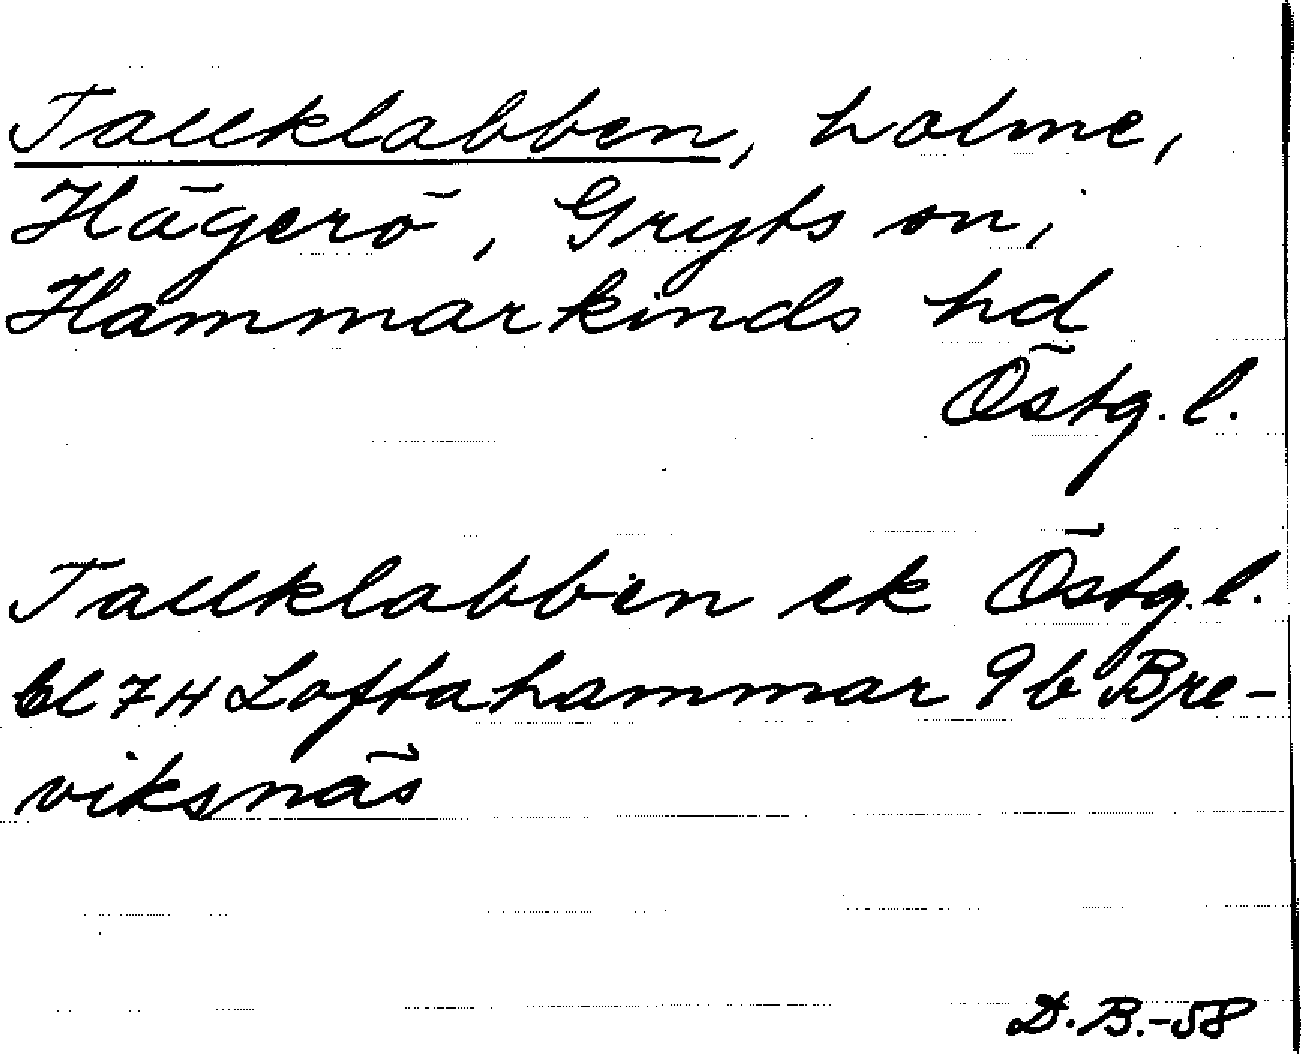 Tallklabben, holme,
Hägerö, Gryts sn,
Hammarkinds hd
Östg. l.
Tallklabben ek Östg. l.
bl 7H Loftahammar 9b Bre-
viksnäs
D.B.-58